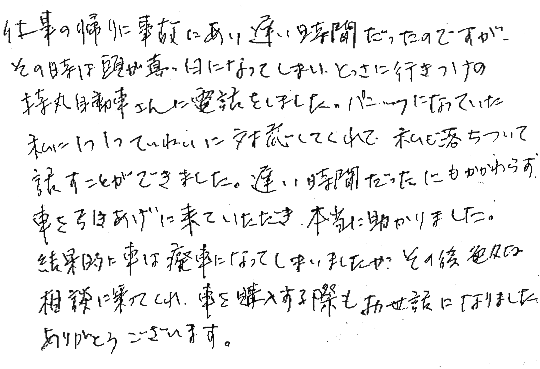 仕事の帰りに事故にあい遅い時間だったのですが、
その時は頭が真っ白になってしまい、とっさに行きつけの
持丸自動車さんに電話をしました。パニックになっていた
私に1つ1つていねいに対応してくれて、私も落ちついて
話すことができました。遅い時間だったにもかかわらず
車を引きあげに来ていただき、本当に助かりました。
結果的に車は廃車になってしまいましたが、その後色々な
相談に乗ってくれ、車を購入する際もお世話になりました。
ありがとうございます。